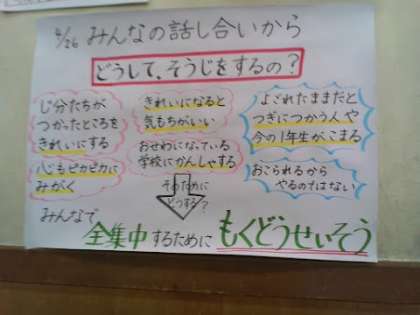 4/26 みんなの話し合いから
どうして、そうじをするの?
じ分たちが
つかったところを
きれいにする
心もピカピカに
みがく
きれいになると
気もちがいい
おせわになっている
学校にかんしゃする
よごれたままだと
つぎにつかう人や
今の1年生がこまる
おこられるから
やるのではない
そのために
どうする?
みんなで
全集中するために もくどうせいそう